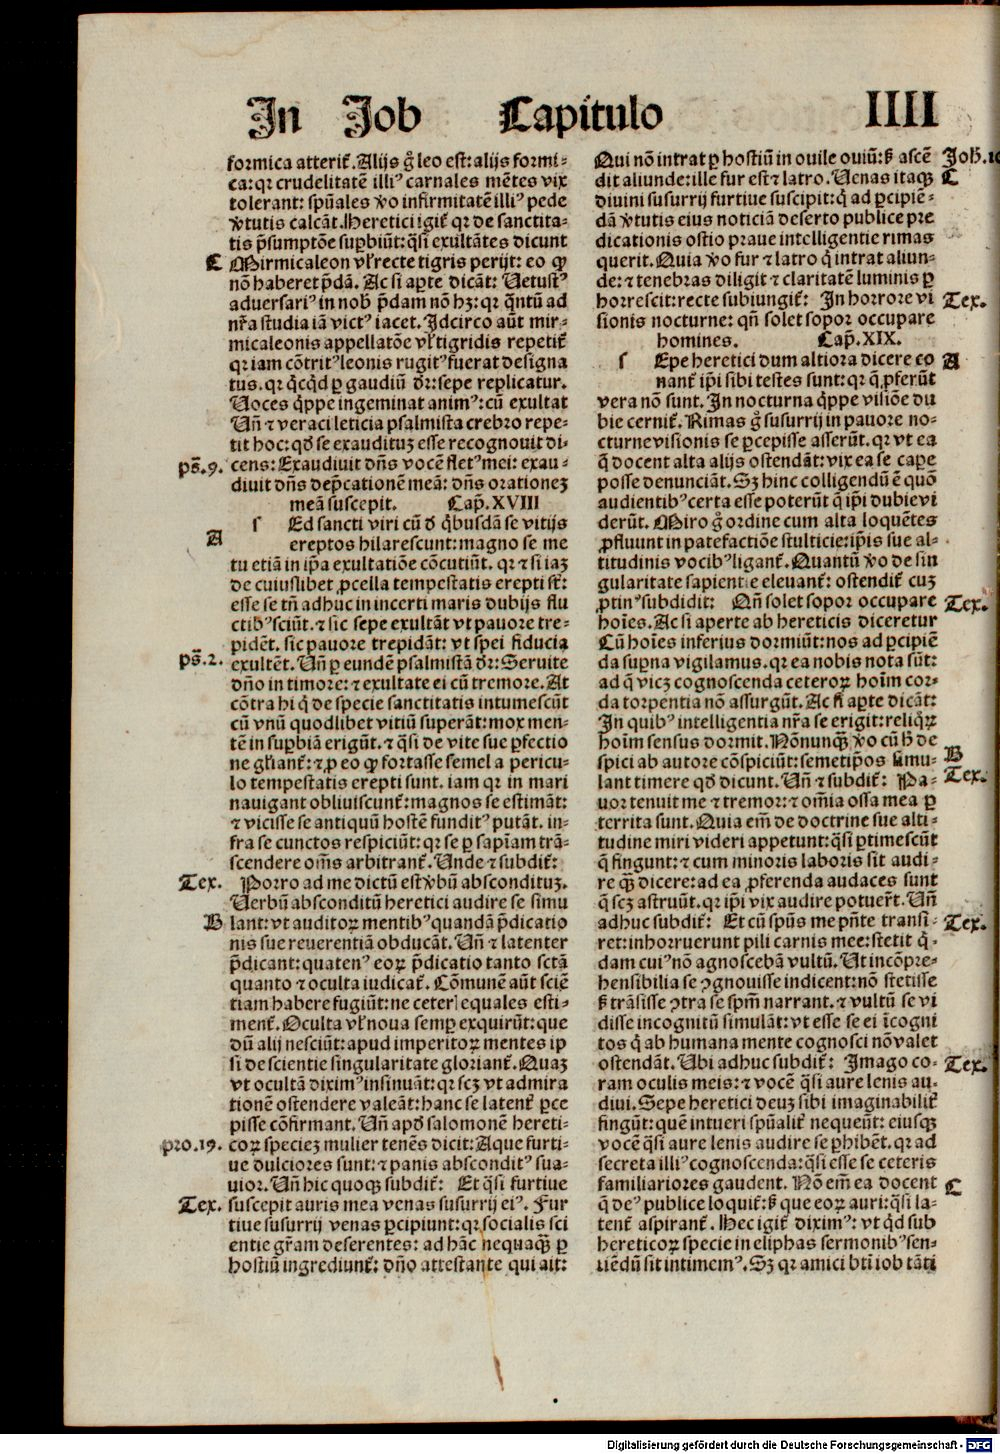 In Job Capitulo IIII
formica atteritᷣ. Alijs gͦ leo est: alijs formi-
ca: qꝛ crudelitatē illiꝰ carnales mētes vix
tolerant: spūales ꝟo infirmitatē illiꝰ pede
ꝟtutis calcāt. Heretici igitᷣ qꝛ de sanctita-
tis p̄sumptōe suꝑbiūt: q̄si exultātes dicunt
C Mirmicaleon vł recte tigris perijt: eo ꝙ
nō haberet p̄dā. Ac si aꝑte dicāt: Uetustꝰ
adversariꝰ in nob̄ p̄dam nō hꝫ: qꝛ q̄ntū ad
nr̄a studia iā victꝰ iacet. Idcirco aūt mir-
micaleonis appellatōe vł tigridis repetitᷣ
qꝛ iam cōtritꝰ leonis rugitꝰ fuerat designa
tus. qꝛ qͥcqͥd ꝑ gaudiū dr̄: sepe replicatur.
Uoces qͥppe ingeminat animꝰ: cū exultat
Uñ ⁊ veraci leticia psalmista crebro repe-
tit hoc: qd̄ se exaudituꝫ esse recognouit di-
pꝭ̄.9. cens: Exaudiuit dn̄s vocē fletꝰ mei: exau-
diuit dn̄s dep̄cationē meā: dn̄s orationeꝫ
meā suscepit. Cap̄. XVIII
s Ed sancti viri cū ꝺ qͥbusdā se vitijs
A ereptos hilarescunt: magno se me
tu etiā in ip̄a exultatiōe cōcutiūt. qꝛ ⁊ si iaꝫ
de cuiuslibet ꝓcella tempestatis erepti st̄:
esse se tn̄ adhuc in incerti maris dubijs flu
ctibꝰ sciūt. ⁊ sic sepe exultāt vt pauore tre-
pidēt. sic pauore trepidāt: vt spei fiducia
pꝭ̄.2. exultēt. Uñ ꝑ eundē psalmistā dr̄: Seruite
dn̄o in timore: ⁊ exultate ei cū tremore. At
cōtra hi qͥ de specie sanctitatis intumescūt
cū vnū quodlibet vitiū superāt: mox men-
tē in suꝑbiā erigūt. ⁊ q̄si de vite sue ꝑfectio
ne głiantᷣ: ⁊ ꝓ eo ꝙ fortasse semel a pericu-
lo tempestatis erepti sunt. iam qꝛ in mari
nauigant obliuiscuntᷣ: magnos se estimāt:
⁊ vicisse se antiquū hostē funditꝰ putāt. in-
fra se cunctos respiciūt: qꝛ se ꝑ sapīam trā-
scendere om̄s arbitrantᷣ. Unde ⁊ subditᷣ:
Tex. Porro ad me dictū est ꝟbū absconditūꝫ.
Uerbū absconditū heretici audire se simu
B lant: vt auditoꝝ mentibꝰ quandā p̄dicatio
nis sue reuerentiā obducāt. Uñ ⁊ latenter
p̄dicant: quatenꝰ eoꝝ p̄dicatio tanto sctā
quanto ⁊ oculta iudicatᷣ. Cōmunē aūt sciē
tiam habere fugiūt: ne ceteri equales esti-
mentᷣ. Oculta vł noua semꝑ exquirūt: que
dū alij nesciūt: apud imperitoꝝ mentes ip
si de scientie singularitate gloriantᷣ. Quaꝫ
vt ocultā diximꝰ insinuāt: qꝛ scꝫ vt admira
tionē ostendere valeāt: hanc se latentᷣ ꝑce
pisse cōfirmant. Uñ apd̄ salomonē hereti-
pro.19. coꝝ specieꝫ mulier tenēs dicit: Aque furti-
ue dulciores sunt: ⁊ panis absconditꝰ sua-
uior. Uñ hic quoqꝫ subditᷣ: Et q̄si furtiue
Tex. suscepit auris mea venas susurrij eiꝰ. Fur
tiue susurrij venas ꝑcipiunt: qꝛ socialis sci
entie gr̄am deserentes: ad hāc nequaꝙ̄ ꝑ
hostiū ingrediuntᷣ: dn̄o attestante qui ait:
Qui nō intrat ꝑ hostiū in ouile ouiū: ꝫ ascē Joh̄.10
dit aliunde: ille fur est ⁊ latro. Uenas itaqꝫ C
diuini susurrij furtiue suscipit: qͥ ad ꝑcipiē-
dā ꝟtutis eius noticiā deserto publice pre
dicationis ostio praue intelligentie rimas
querit. Quia ꝟo fur ⁊ latro qͥ intrat aliun-
de: ⁊ tenebras diligit ⁊ claritatē luminis ꝑ
horrescit: recte subiungitᷣ: In horrore vi Tex.
sionis nocturne: qn̄ solet sopor occupare
homines. Cap̄. XIX.
s Epe heretici dum altiora dicere co A
nantᷣ ip̄i sibi testes sunt: qꝛ q̄ ꝓferūt
vera nō sunt. In nocturna qͥppe visiōe du
bie cernitᷣ. Rimas gͦ susurrij in pauore no-
cturne visionis se ꝑcepisse asserūt. qꝛ vt ea
q̄ docent alta alijs ostendāt: vix ea se cape
posse denunciāt. Sꝫ hinc colligendū ē quō
audientibꝰ certa esse poterūt q̄ ip̄i dubie vi
derūt. Miro gͦ ordine cum alta loquētes
ꝓfluunt in patefactiōe stulticie: ip̄is sue al-
titudinis vocibꝰ ligantᷣ. Quantū ꝟo de sin
gularitate sapientie eleuantᷣ: ostenditᷣ cuꝫ
ꝓtinꝰ subdidit: Qn̄ solet sopor occupare Tex.
hoīes. Ac si aperte ab hereticis diceretur
Cū hoīes inferius dormiūt: nos ad ꝑcipiē
da suꝑna vigilamus. qꝛ ea nobis nota sūt:
ad q̄ vicꝫ cognoscenda ceteroꝝ hoīm cor-
da torpentia nō assurgūt. Ac si aꝑte dicāt:
In quibꝰ intelligentia nr̄a se erigit: reliqͦꝝ
hoīm sensus dormit. Nōnunꝙ̄ ꝟo cū h̄ de B
spici ab autore cōspiciūt: semetip̄os simu-
lant timere qd̄ dicunt. Uñ ⁊ subditᷣ: Pa- Tex.
uor tenuit me ⁊ tremor: ⁊ om̄ia ossa mea ꝑ
territa sunt. Quia em̄ de doctrine sue alti-
tudine miri videri appetunt: q̄si ꝑtimescūt
q̄ fingunt: ⁊ cum minoris laboris sit audi-
re ꝙ̄ dicere: ad ea ꝓferenda audaces sunt
q̄ scꝫ astruūt. qꝛ ip̄i vix audire potuer̄t. Uñ
adhuc subditᷣ: Et cū spūs me pn̄te transi- Tex.
ret: inhorruerunt pili carnis mee: stetit qͥ-
dam cuiꝰ nō agnoscebā vultū. Ut incōpre-
hensibilia se ꝯgnouisse indicent: nō stetisse
ꝫ trāsisse ꝯtra se spm̄ narrant. ⁊ vultū se vi
disse incognitū simulāt: vt esse se ei īcogni
tos qͥ ab humana mente cognosci nō valet
ostendāt. Ubi adhuc subditᷣ: Imago co- Tex.
ram oculis meis: ⁊ vocē q̄si aure lenis au-
diui. Sepe heretici deuꝫ sibi imaginabilitᷣ
fingūt: quē intueri spūalitᷣ nequeūt: eiusqꝫ
vocē q̄si aure lenis audire se ꝑhibēt. qꝛ ad
secreta illiꝰ cognoscenda: q̄si esse se ceteris
familiariores gaudent. Nō em̄ ea docent C
q̄ deꝰ publice loquitᷣ: ꝫ que eoꝝ auri: q̄si la-
tentᷣ aspirantᷣ. Hec igitᷣ diximꝰ: vt qͥd sub
hereticoꝝ specie in eliphas sermonibꝰ sen-
tiēdū sit intimemꝰ. Sꝫ qꝛ amici bt̄i iob tāti
Digitalisierung gefördert durch die Deutsche Forschungsgemeinschaft - DFG